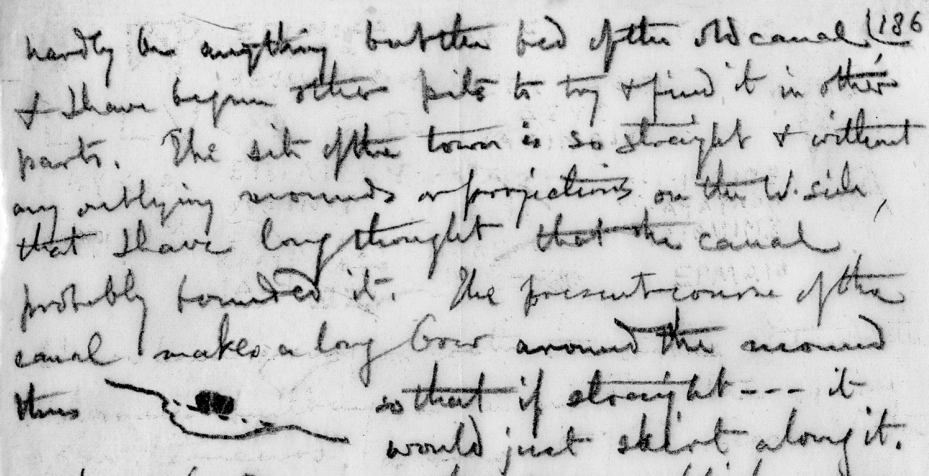 hardly be anything but the bed of the old canal (186
& I have begun other pits to try & find it in other
parts. The site of the town is so straight & without
any outlying mounds or projections on the W. side,
that I have long thought that the canal
probably bounded it. The present course of the
canal makes a long bow around the mound
thus so that if straight --- it
would just skirt along it.